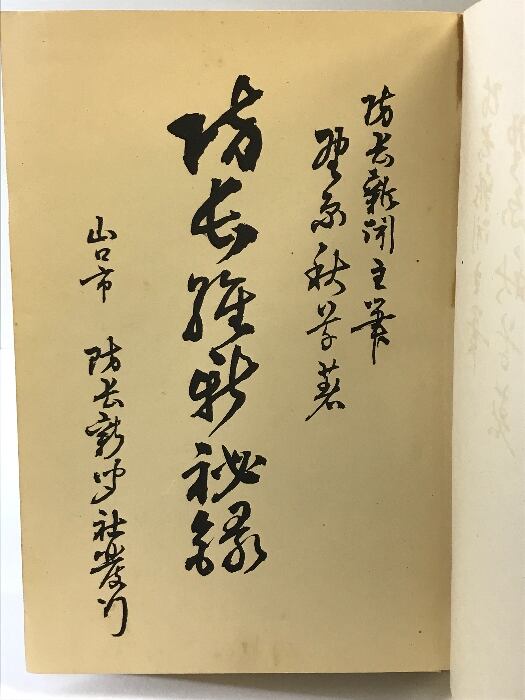 防長新聞主筆
野原秋草著
防長維新秘録
山口市 防長新聞社発行